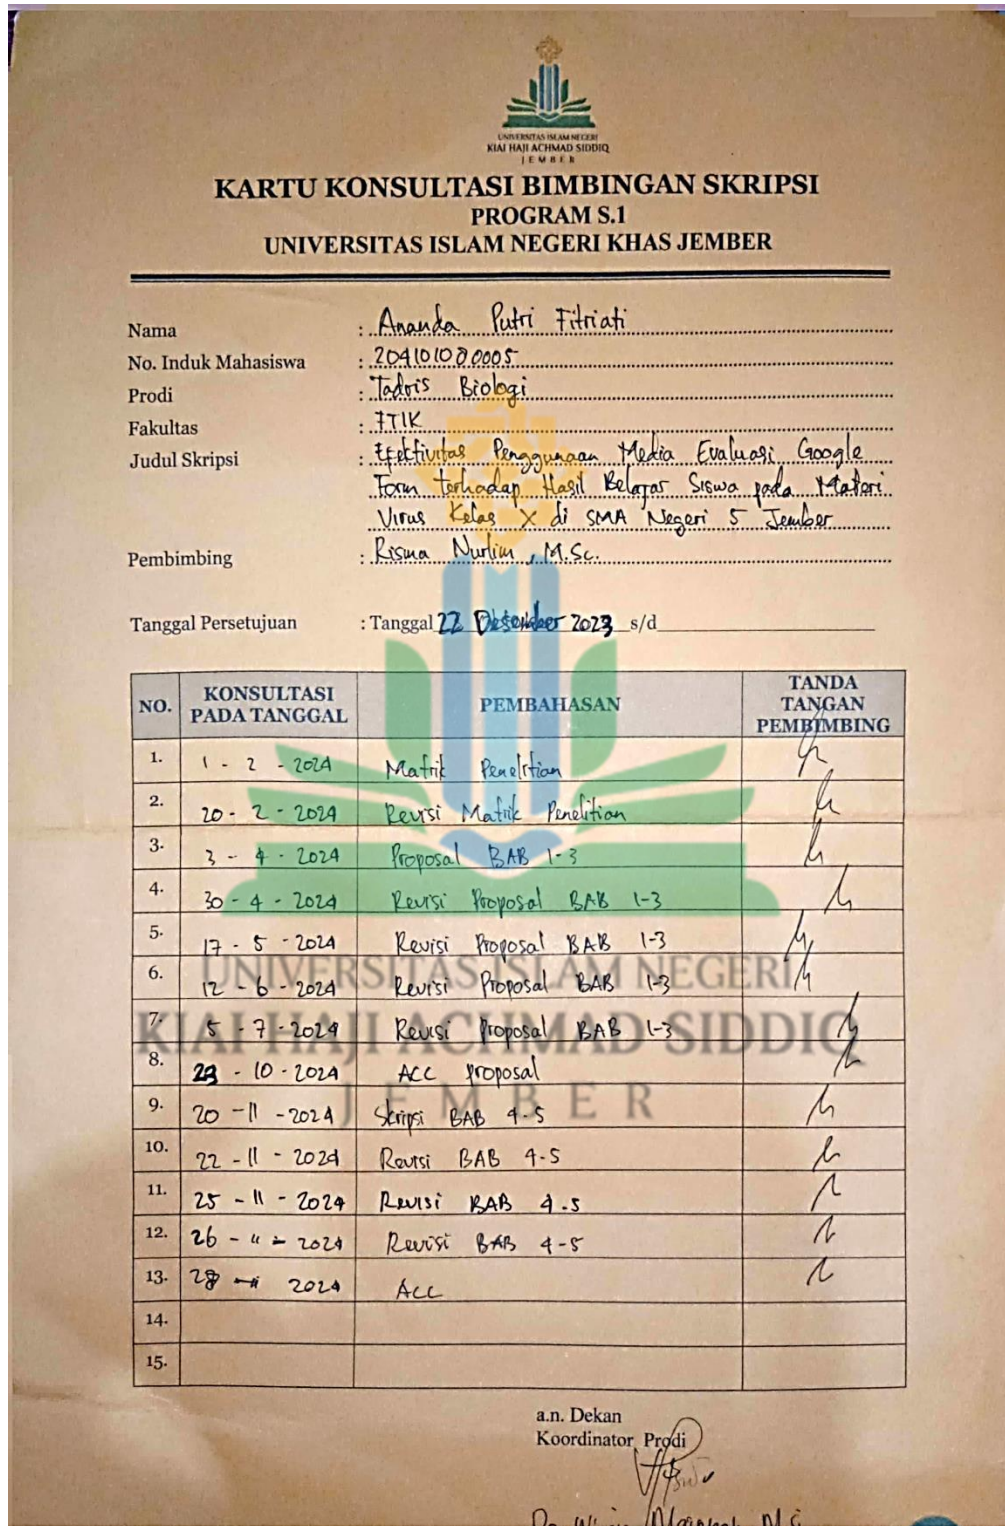 UNIVERSITAS ISLAM NEGERI
KIAI HAJI ACHMAD SIDDIQ
JEMBER
KARTU KONSULTASI BIMBINGAN SKRIPSI
PROGRAM S.1
UNIVERSITAS ISLAM NEGERI KHAS JEMBER
Nama : Ananda Putri Fitriati
No. Induk Mahasiswa : 204101080005
Prodi : Tadris Biologi
Fakultas : FTIK
Judul Skripsi : Efektivitas Penggunaan Media Evaluasi Google
Form terhadap Hasil Belajar Siswa pada Materi
Virus Kelas X di SMA Negeri 5 Jember
Pembimbing : Risma Nurlim, M.Sc.
Tanggal Persetujuan : Tanggal 22 Desember 2023 s/d
NO. KONSULTASI PADA TANGGAL PEMBAHASAN TANDA TANGAN PEMBIMBING
1. 1 - 2 - 2024 Matrik Penelitian
2. 20 - 2 - 2024 Revisi Matrik Penelitian
3. 3 - 4 - 2024 Proposal BAB 1-3
4. 30 - 4 - 2024 Revisi Proposal BAB 1-3
5. 17 - 5 - 2024 Revisi Proposal BAB 1-3
6. 12 - 6 - 2024 Revisi Proposal BAB 1-3
7. 5 - 7 - 2024 Revisi Proposal BAB 1-3
8. - 10 - 2024 ACC proposal
9. 20 - 11 - 2024 Skripsi BAB 4-5
10. 22 - 11 - 2024 Revisi BAB 4-5
11. 25 - 11 - 2024 Revisi BAB 4-5
12. 26 - 11 - 2024 Revisi BAB 4-5
13. 2024 ACC
14.
15.
UNIVERSITAS ISLAM NEGERI
KIAI HAJI ACHMAD SIDDIQ
JEMBER
a.n. Dekan
Koordinator Prodi